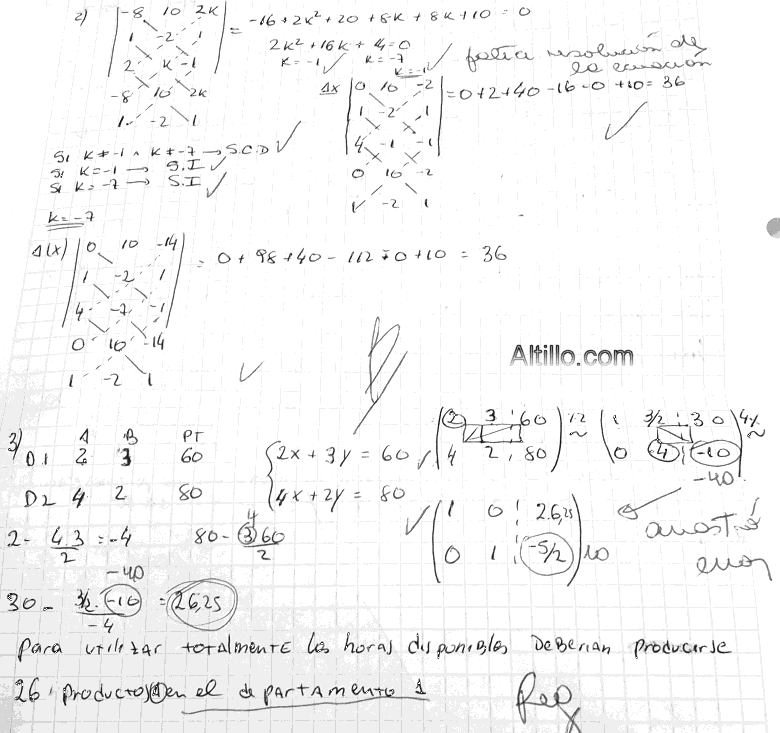 2) | -8 10 2K | = -16 + 2K² + 20 + 8K + 8K + 10 = 0
1 -2 1
2 K -1
-8 10 2K
1 -2 1
2K² + 16K + 14 = 0
K = -1 ✓ K = -7
K = -1 ✓
falta resolución de
la ecuación
Δx | 0 10 -2 | = 0 + 2 + 40 - 16 - 0 + 10 = 36
1 -2 1
4 -1 -1
0 10 -2
1 -2 1
Si K ≠ -1 ∧ K ≠ -7 → S.C.D ✓
Si K = -1 → S.I ✓
Si K = -7 → S.I ✓
K = -7
Δ(x) | 0 10 -14 | = 0 + 98 + 40 - 112 + 0 + 10 = 36
1 -2 1
4 -7 -1
0 10 -14
1 -2 1
Altillo.com
3) A B PT
D1 2 3 60
D2 4 2 80
{ 2x + 3y = 60 ✓
4x + 2y = 80
( 2 3 60 ) ½ ~ ( 1 3/2 30 ) ~
4 2 80 0 4 -10
-40
2 - 4.3/2 = -4 80 - 4 3 60/2
-40
✓ ( 1 0 26,25 )
0 1 -5/2 10
arrastró
error
30 - 3/2 . -10/-4 = 26,25
Para utilizar totalmente las horas disponibles deberian producirse
26 productos en el departamento 1
Reg